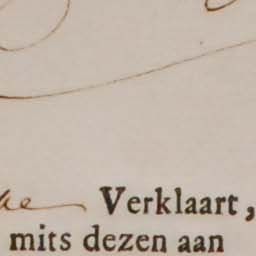 Verklaart,
mits dezen aan